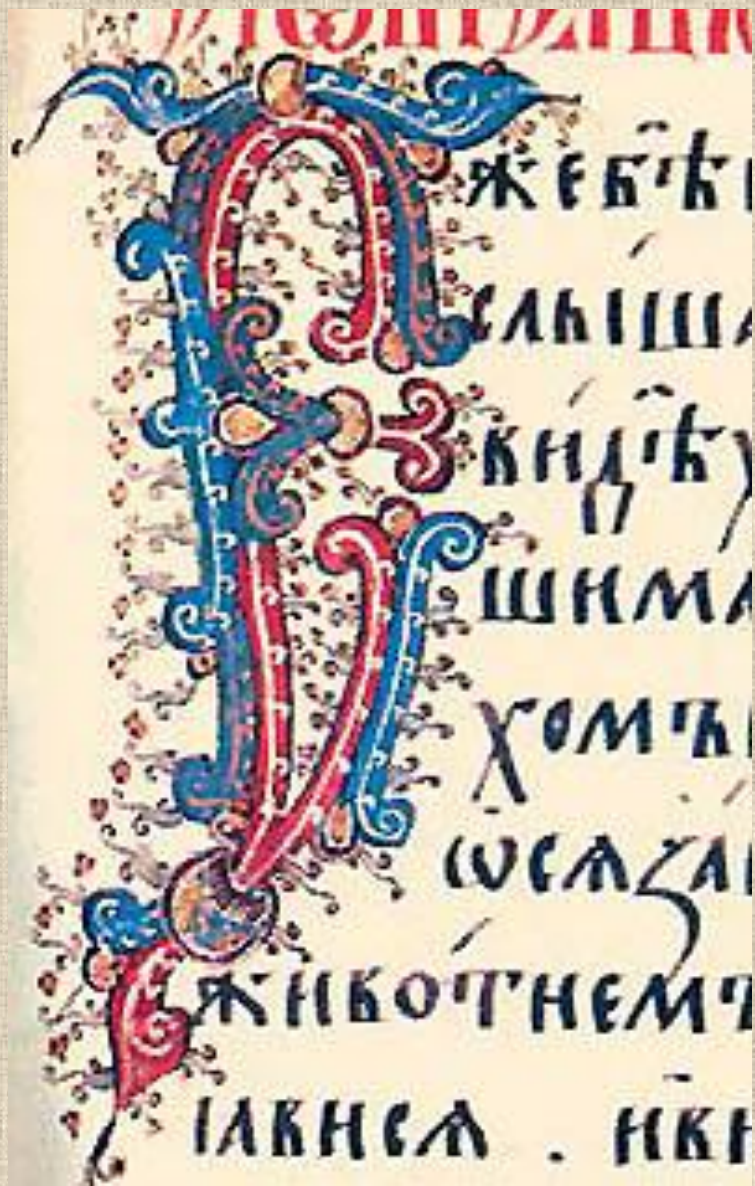 Ежебѣ
слыша
видѣ
шима
хомъ
ѡсѧза
животнемъ
ꙗвисѧ . ив